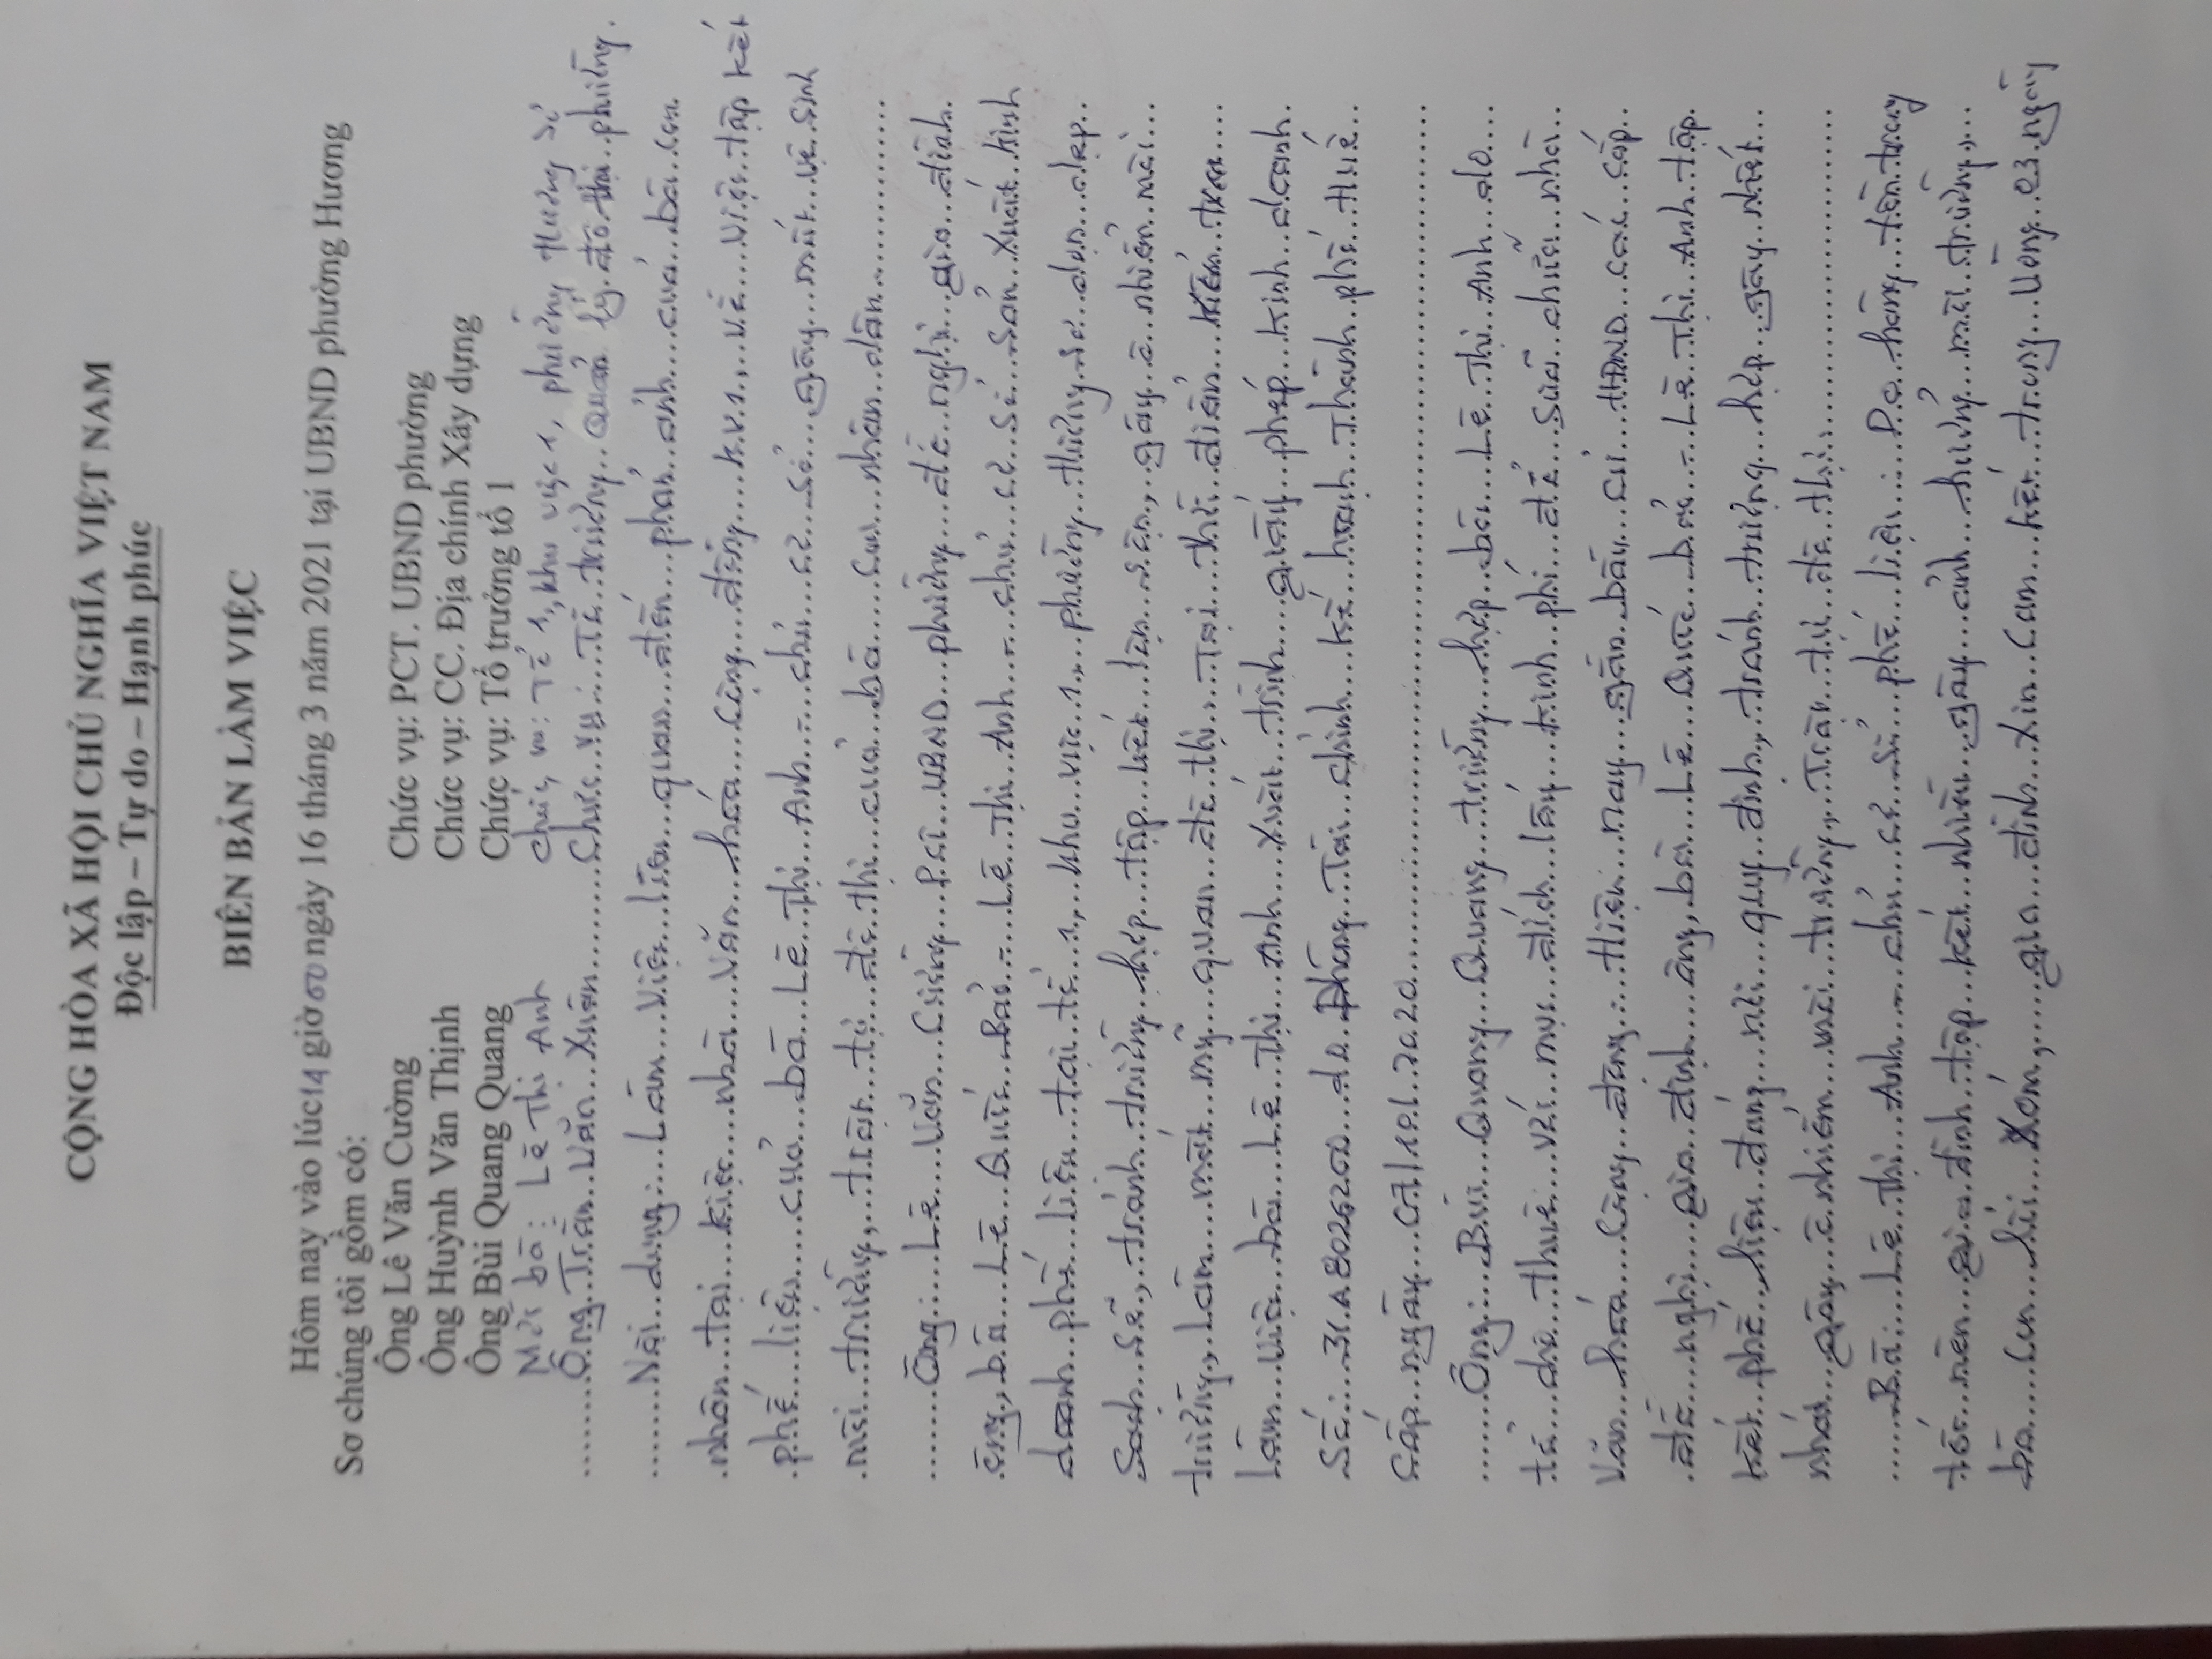 CỘNG HÒA XÃ HỘI CHỦ NGHĨA VIỆT NAM
Độc lập – Tự do – Hạnh phúc
BIÊN BẢN LÀM VIỆC
Hôm nay vào lúc 14 giờ 00 ngày 16 tháng 3 năm 2021 tại UBND phường Hương
Sơ chúng tôi gồm có:
Ông Lê Văn Cường Chức vụ: PCT. UBND phường
Ông Huỳnh Văn Thịnh Chức vụ: CC. Địa chính Xây dựng
Ông Bùi Quang Quang Chức vụ: Tổ trưởng tổ 1
Mời bà: Lê Thị Anh Chức vụ: Tổ 1, khu vực 1, phường Hương Sơ
Ông Trần Văn Xuân Chức vụ: Tổ trưởng Quản lý đô thị phường.
Nội dung: Làm việc liên quan đến phản ánh của bà con
nhân tại kiệt nhà văn hóa cộng đồng KV1, về việc tập kết
phế liệu của bà Lê Thị Anh - chủ cơ sở gây mất vệ sinh
môi trường, trật tự đô thị của bà con nhân dân
Ông: Lê Văn Cường PCT UBND phường đề nghị gia đình
ông, bà Lê Quốc Bảo - Lê Thị Anh - chủ cơ sở sản xuất kinh
doanh phế liệu tại tổ 1, khu vực 1, phường Hương Sơ dọn dẹp
sạch sẽ, tránh trường hợp tập kết lộn xộn, gây ô nhiễm môi
trường, làm mất mỹ quan đô thị. Tại thời điểm kiểm tra
làm việc bà Lê Thị Anh xuất trình giấy phép kinh doanh
Số: 31A8026200 do Phòng Tài chính kế hoạch Thành phố Huế
Cấp ngày 10/2020
Ông: Bùi Quang Quang trường hợp bà Lê Thị Anh do
tổ cho thuê với mục đích lấy kinh phí để sửa chữa nhà
văn hóa cộng đồng. Hiện nay gần bầu cử HĐND các cấp
đề nghị gia đình ông, bà Lê Quốc Bảo - Lê Thị Anh tập
kết phế liệu đúng nơi quy định, tránh trường hợp gây
gây ô nhiễm môi trường, Trật tự đô thị.
Bà: Lê Thị Anh - chủ cơ sở phế liệu: Do hàng tồn trong
tết nên gia đình tập kết nhiều gây ảnh hưởng môi trường,
bà con lối xóm, gia đình xin cam kết trong vòng 03 ngày